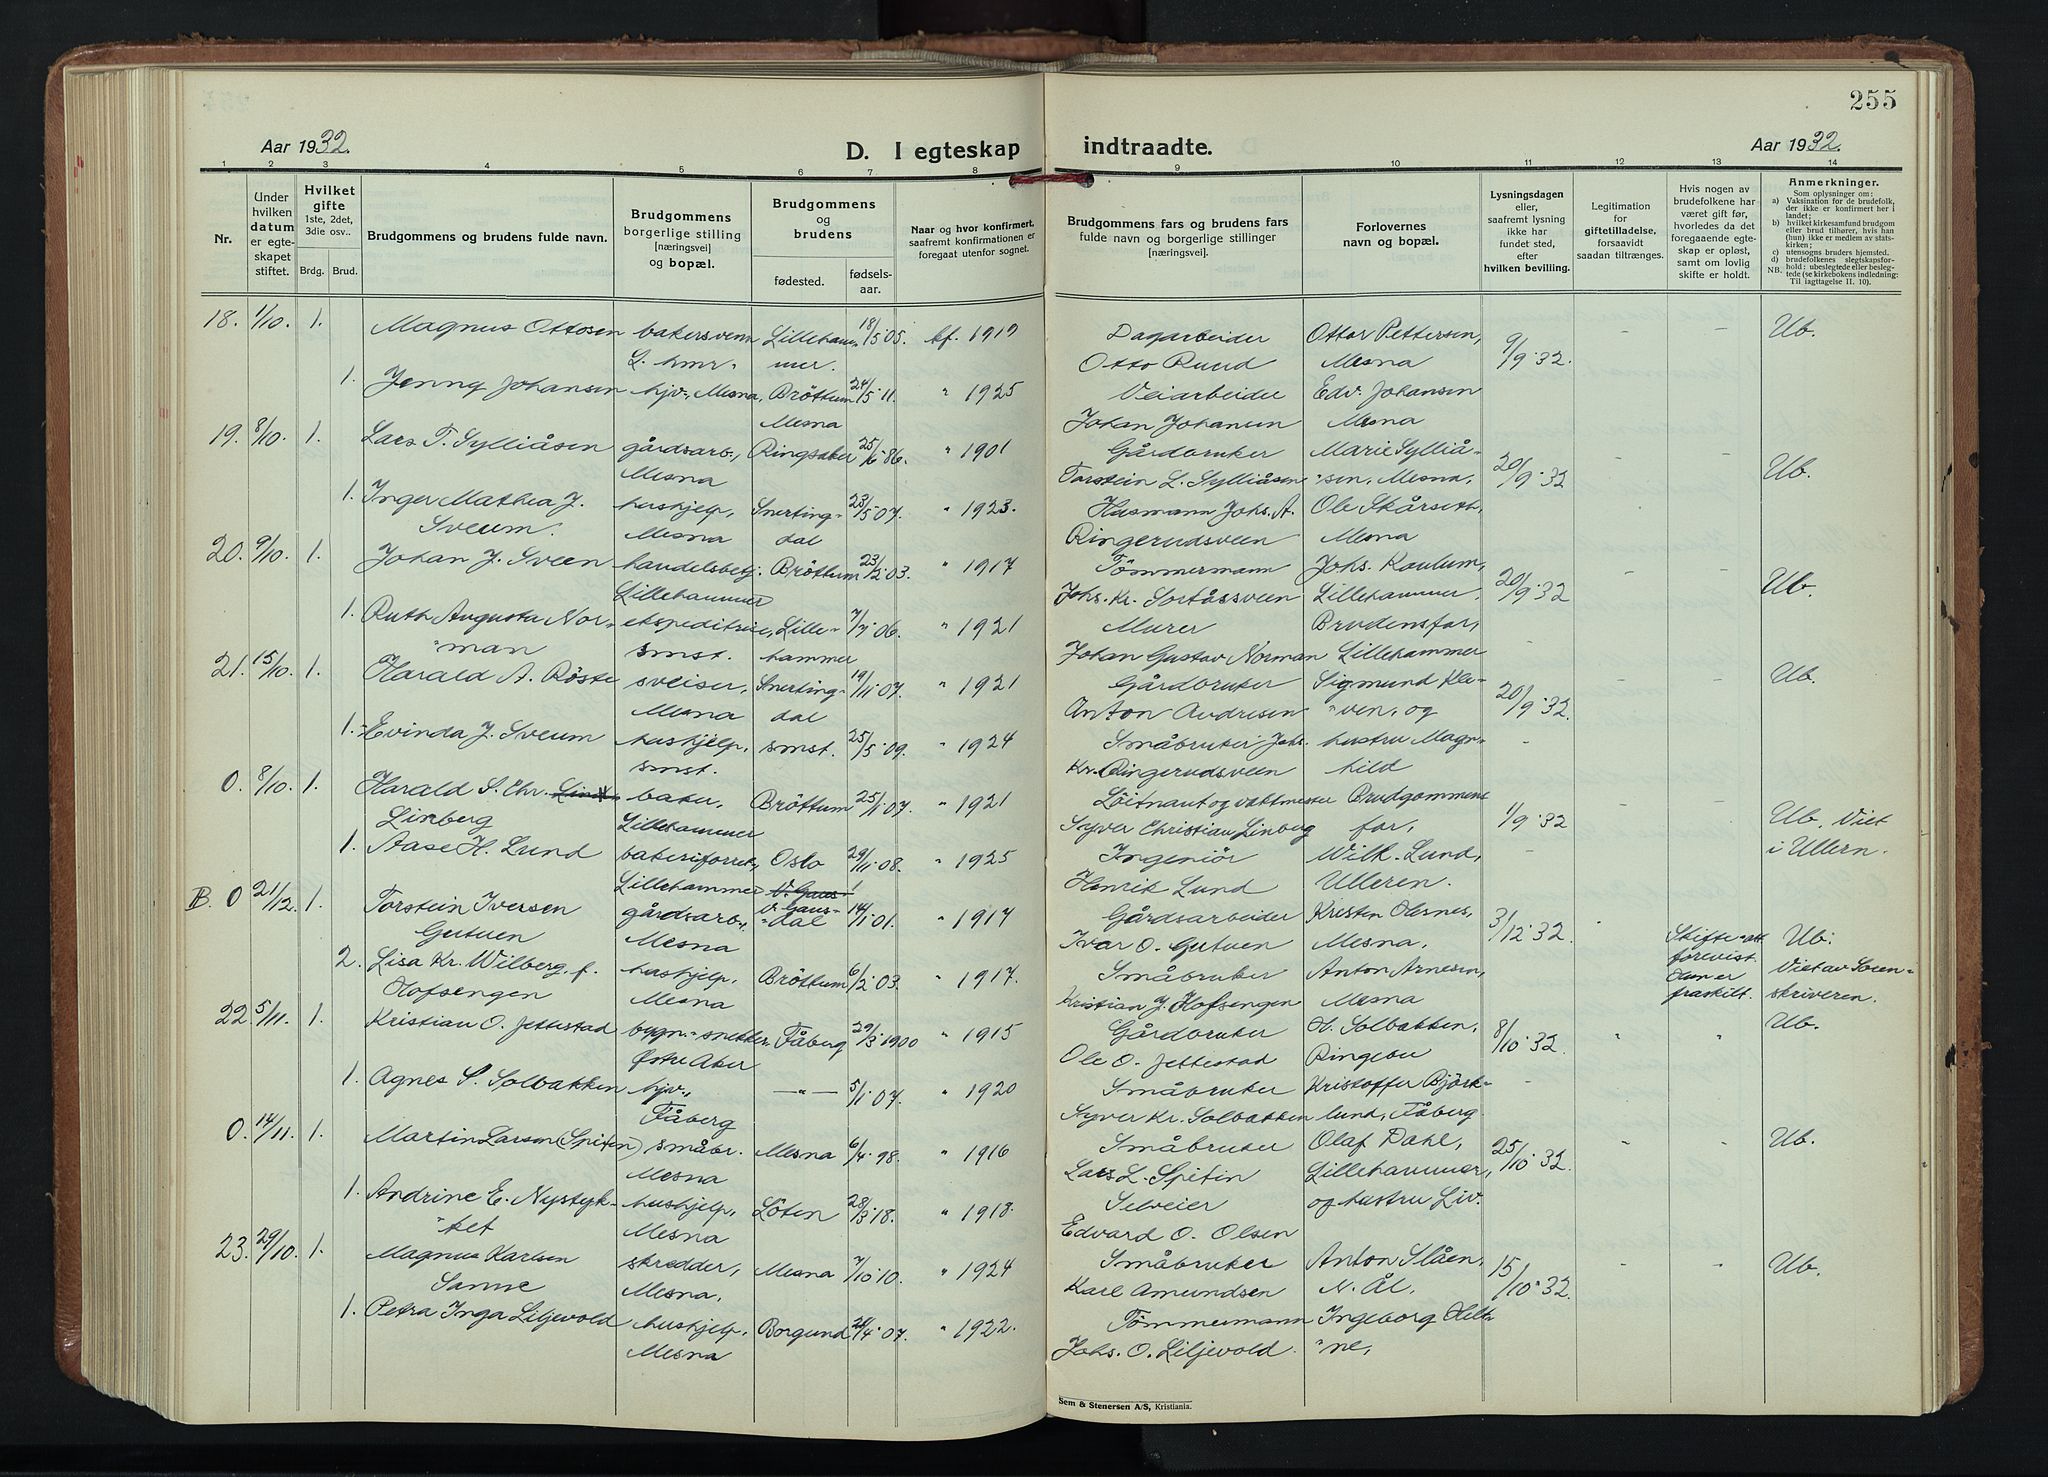 255
Aar 1932.
D. I egteskap
indtraadte.
Aar 1932.
1 2 3 4 5 6 7 8 9 10 11 12 13 14
Nr.
Under
hvilken
datum
er egte-
skapet
stiftet.
Hvilket
gifte
1ste, 2det,
3die osv..
Brdg. Brud.
Brudgommens og brudens fulde navn.
Brudgommens
borgerlige stilling
[næringsvei]
og bopæl.
Brudgommens
og
brudens
fødested.
fødsels-
aar.
Naar og hvor konfirmert,
saafremt konfirmationen er
foregaat utenfor sognet.
Brudgommens fars og brudens fars
fulde navn og borgerlige stillinger
[næringsvei].
Forlovernes
navn og bopæl.
Lysningsdagen
eller,
saafremt lysning
ikke har
fundet sted,
efter
hvilken bevilling.
Legitimation
for
giftetilladelse,
forsaavidt
saadan tiltrænges.
Hvis nogen av
brudefolkene har
været gift før,
hvorledes da det
foregaaende egte-
skap er opløst,
samt om lovlig
skifte er holdt.
Anmerkninger.
Som oplysninger om:
a) Vaksination for de brudefolk,
der ikke er konfirmert her i
landet;
b) hvilket kirkesamfund brudgom
eller brud tilhører, hvis han
(hun) ikke er medlem av stats-
kirken;
c) utensogns bruders hjemsted.
d) brudefolkenes slegtskapsfor-
hold: ubeslegtede eller besleg-
NB. tede (se kirkebokens indledning:
Til iagttagelse II. 10).
18. 1/10. 1. Magnus Ottosen bakersvenn Lilleham- 18/5 05. kf. 1919 Dagarbeider Ottar Pettersen, 9/9 32. Ub.
L.hmr. mer. Otto Ruud Mesna
1. Jenny Johansen hjv., Mesna, Bröttum 24/5 11. " 1925 Veiarbeider Edv. Johansen
Mesna Johan Johansen Mesna
19. 8/10. 1. Lars T. Sylliåsen gårdsarb., Ringsaker 25/6 86. " 1901 Gårdbruker Marie Sylliå- 20/9 32 Ub.
Mesna Torstein L. Sylliåsen "sen, Mesna,
1. Inger Mathea J. hushjelp, Snerting- 23/5 07. " 1923. Husmann Johs. A. Ole Skårseth,
Sveum. Mesna dal Ringerudsveen Mesna
20. 9/10. 1. Johan J. Sveen handelsbetj. Bröttum 23/2 03. " 1917 Tömmermann Johs. Kaulum, 20/9 32 Ub.
Lillehammer Johs. Kr. Sortåssveen Lillehammer,
1. Ruth Augusta Nor- ekspeditrise, Lille- 7/7 06. " 1921 Murer Brudensfar,
"man smst. hammer Johan Gustav Norman Lillehammer
21. 15/10. 1. Harald A. Röste sveiser, Snerting- 19/11 07. " 1921 Gårdbruker Sigmund Kle- 20/9 32. Ub.
Mesna dal Anton Andresen "ven, og
1. Evinda J. Sveum hushjelp, smst. 25/5 09. " 1924 Småbruker Johs. hustru Magn-
smst. Kr. Ringerudsveen hild
0. 8/10. 1. Harald S. Chr. baker, Bröttum 25/1 07. " 1921 Löitnant og vaktmester Brudgommens 1/9 32 Ub. Viet
Linberg Lillehammer Syver Christian Linberg far, i Ullern.
1. Aase H. Lund bakeriforret., Oslo 29/11 08. " 1925 Ingeniör Wilh. Lund,
Lillehammer V. Gaus- Henrik Lund Ulleren.
B. 0 21/12. 1. Torstein Iversen gårdsarb., V. Gaus- 14/1 01. " 1917 Gårdsarbeider Kristen Olsnes, 3/12 32. Skifte-att. Ub.
Gutuen Mesna "dal Ivar O. Gutuen Mesna, forevist.
2. Lisa Kr. Wilberg f. hushjelp, Bröttum 6/2 03. " 1917. Småbruker Anton Arnesen, Hun er Viet av Soren-
Hofsengen Mesna Kristian J. Hofsengen Mesna fraskilt. skriveren.
22. 5/11. 1. Kristian O. Jettestad bygn.-snekker, Fåberg 29/3 1900 " 1915 Gårdbruker H. Solbakken, 8/10 32. Ub.
Østre Aker Ole O. Jettestad Ringebu
1. Agnes S. Solbakken hjv., —"— 5/1 07. " 1920 Småbruker Kristoffer Björk-
Fåberg Syver Kr. Solbakken lund, Fåberg.
0. 14/11. 1. Martin Larsen (Spiten) småbr. Mesna 6/4 98. " 1916 Småbruker Olaf Dahl, 25/10 32. Ub.
Mesna Lars L. Spitin Lillehammer,
1. Andrine E. Nystyk- hushjelp, Löten 28/3 18. " 1918. Selveier og hustru Liv.
"ket Mesna Edvard O. Olsen
23. 29/10. 1. Magnus Karlsen skredder, Mesna 7/10 10. " 1924 Småbruker Anton Slåen, 15/10 32. Ub.
Sanne Mesna, Karl Amundsen N. Ål,
1. Petra Inga Liljevold hushjelp, Borgund 24/4 07. " 1922. Tömmermann Ingeborg Helt-
Mesna Johs. O. Liljevold. "ne,
Sem & Stenersen A/S, Kristiania.